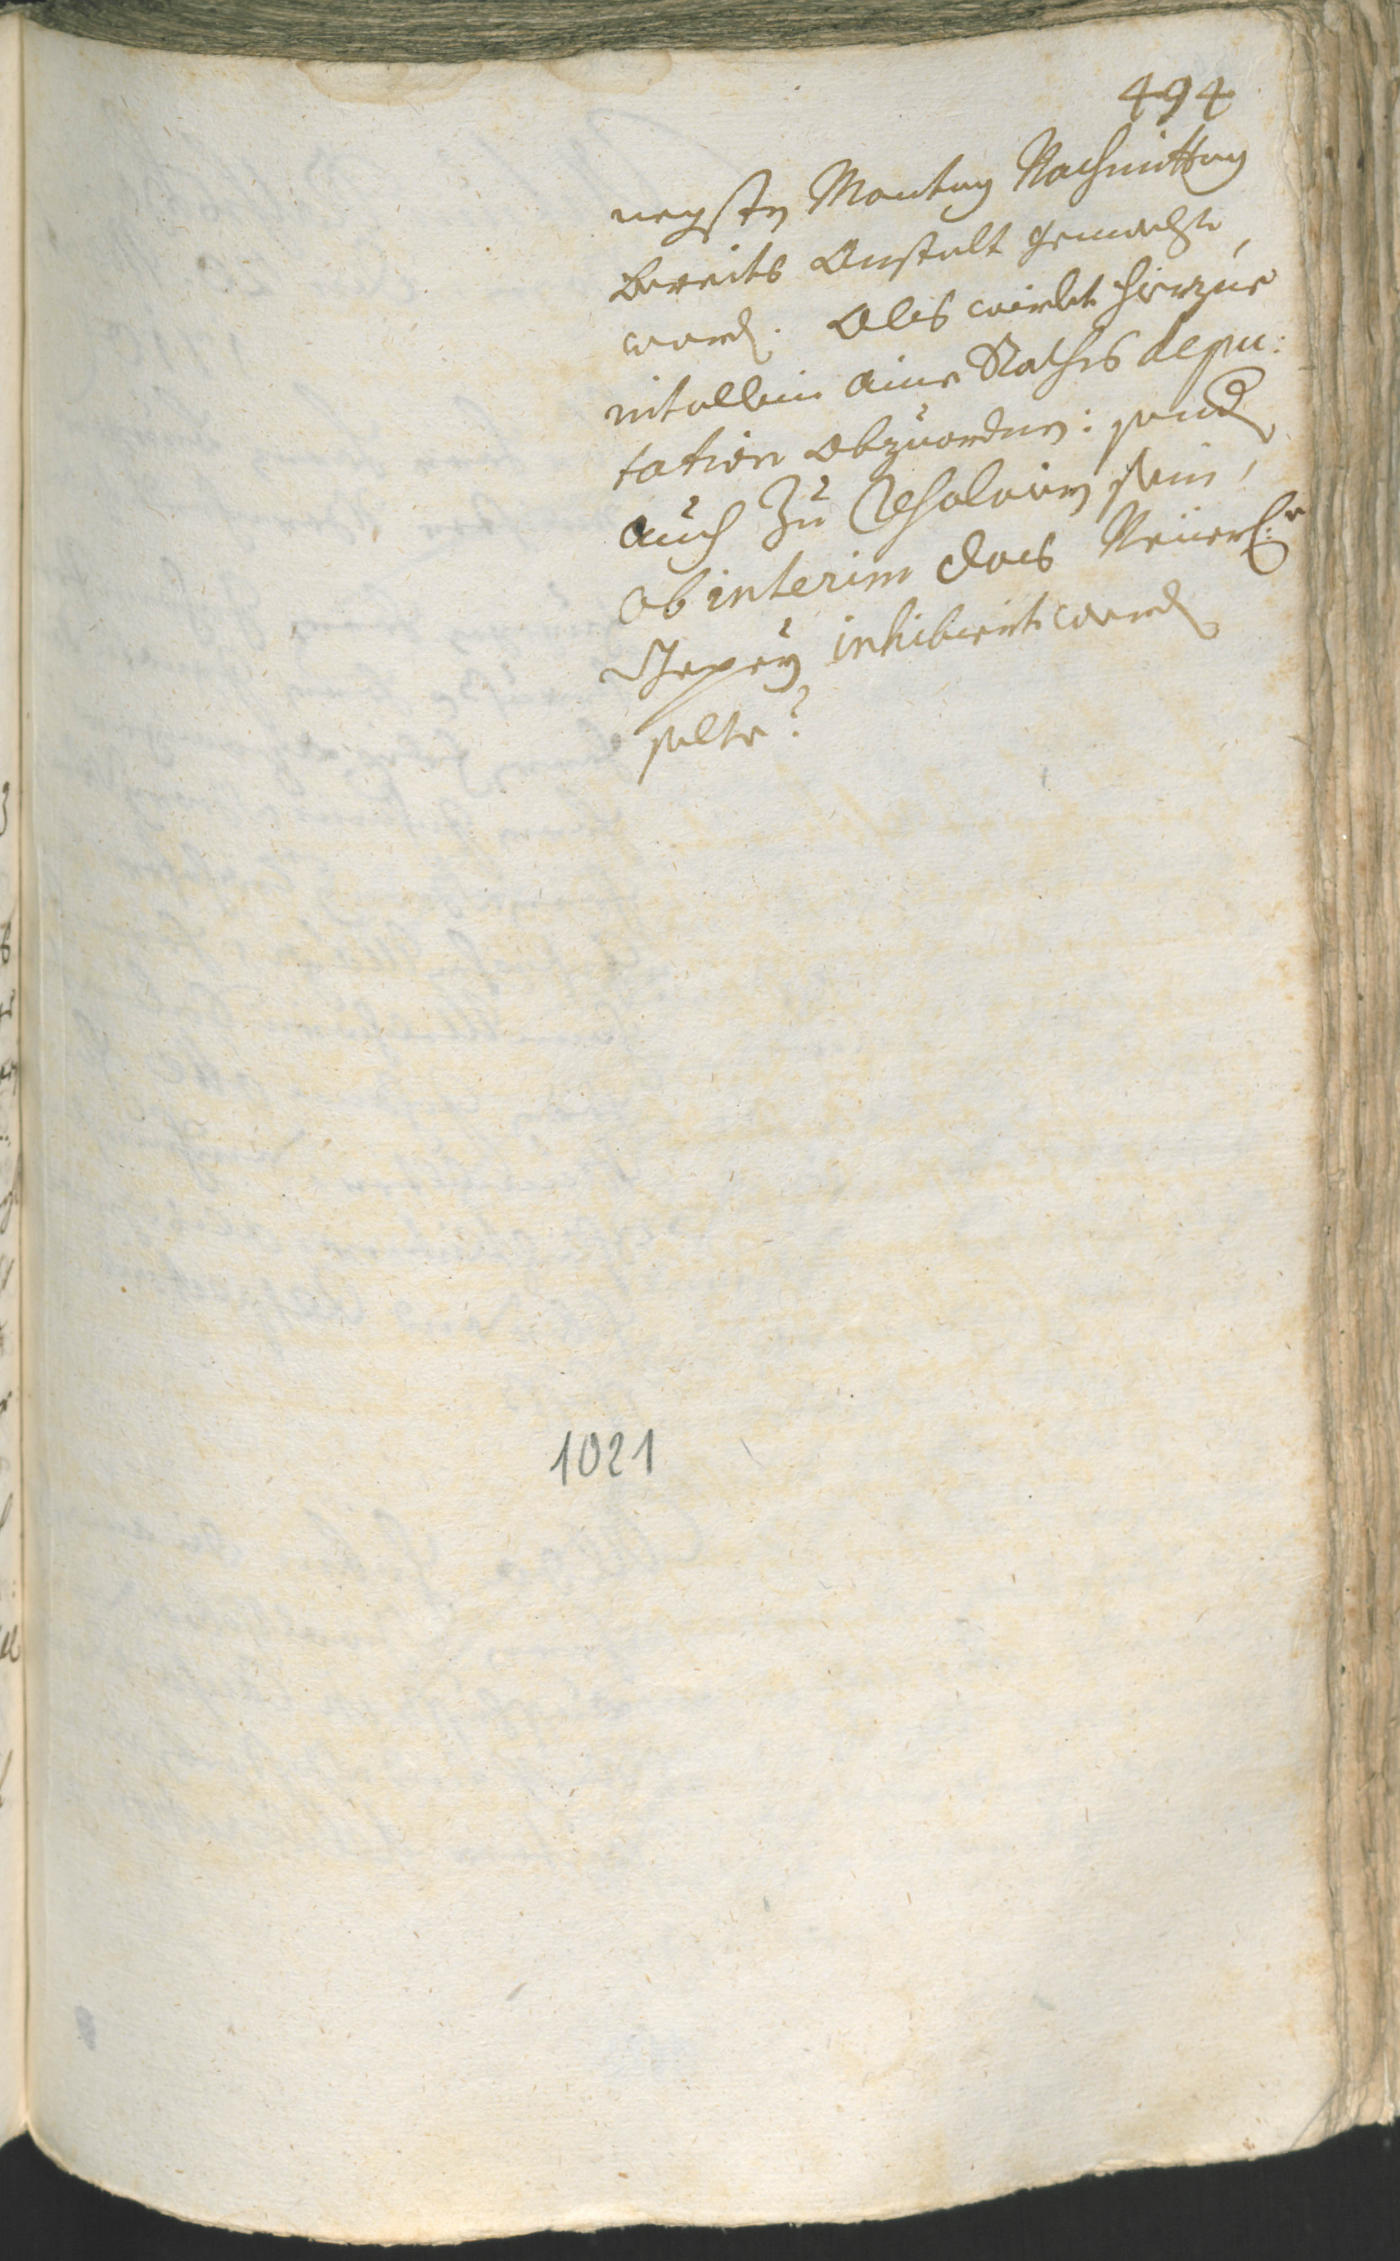 494
negsten Montag Nachmittag
bereits Anstalt gemachte
word. Als wirdt hierzue
nit allein aine Raths depu:
tation abzuordnen: sond
auch zu resolviern sein,
ob interim das
inhibiert werd
solte?
1021